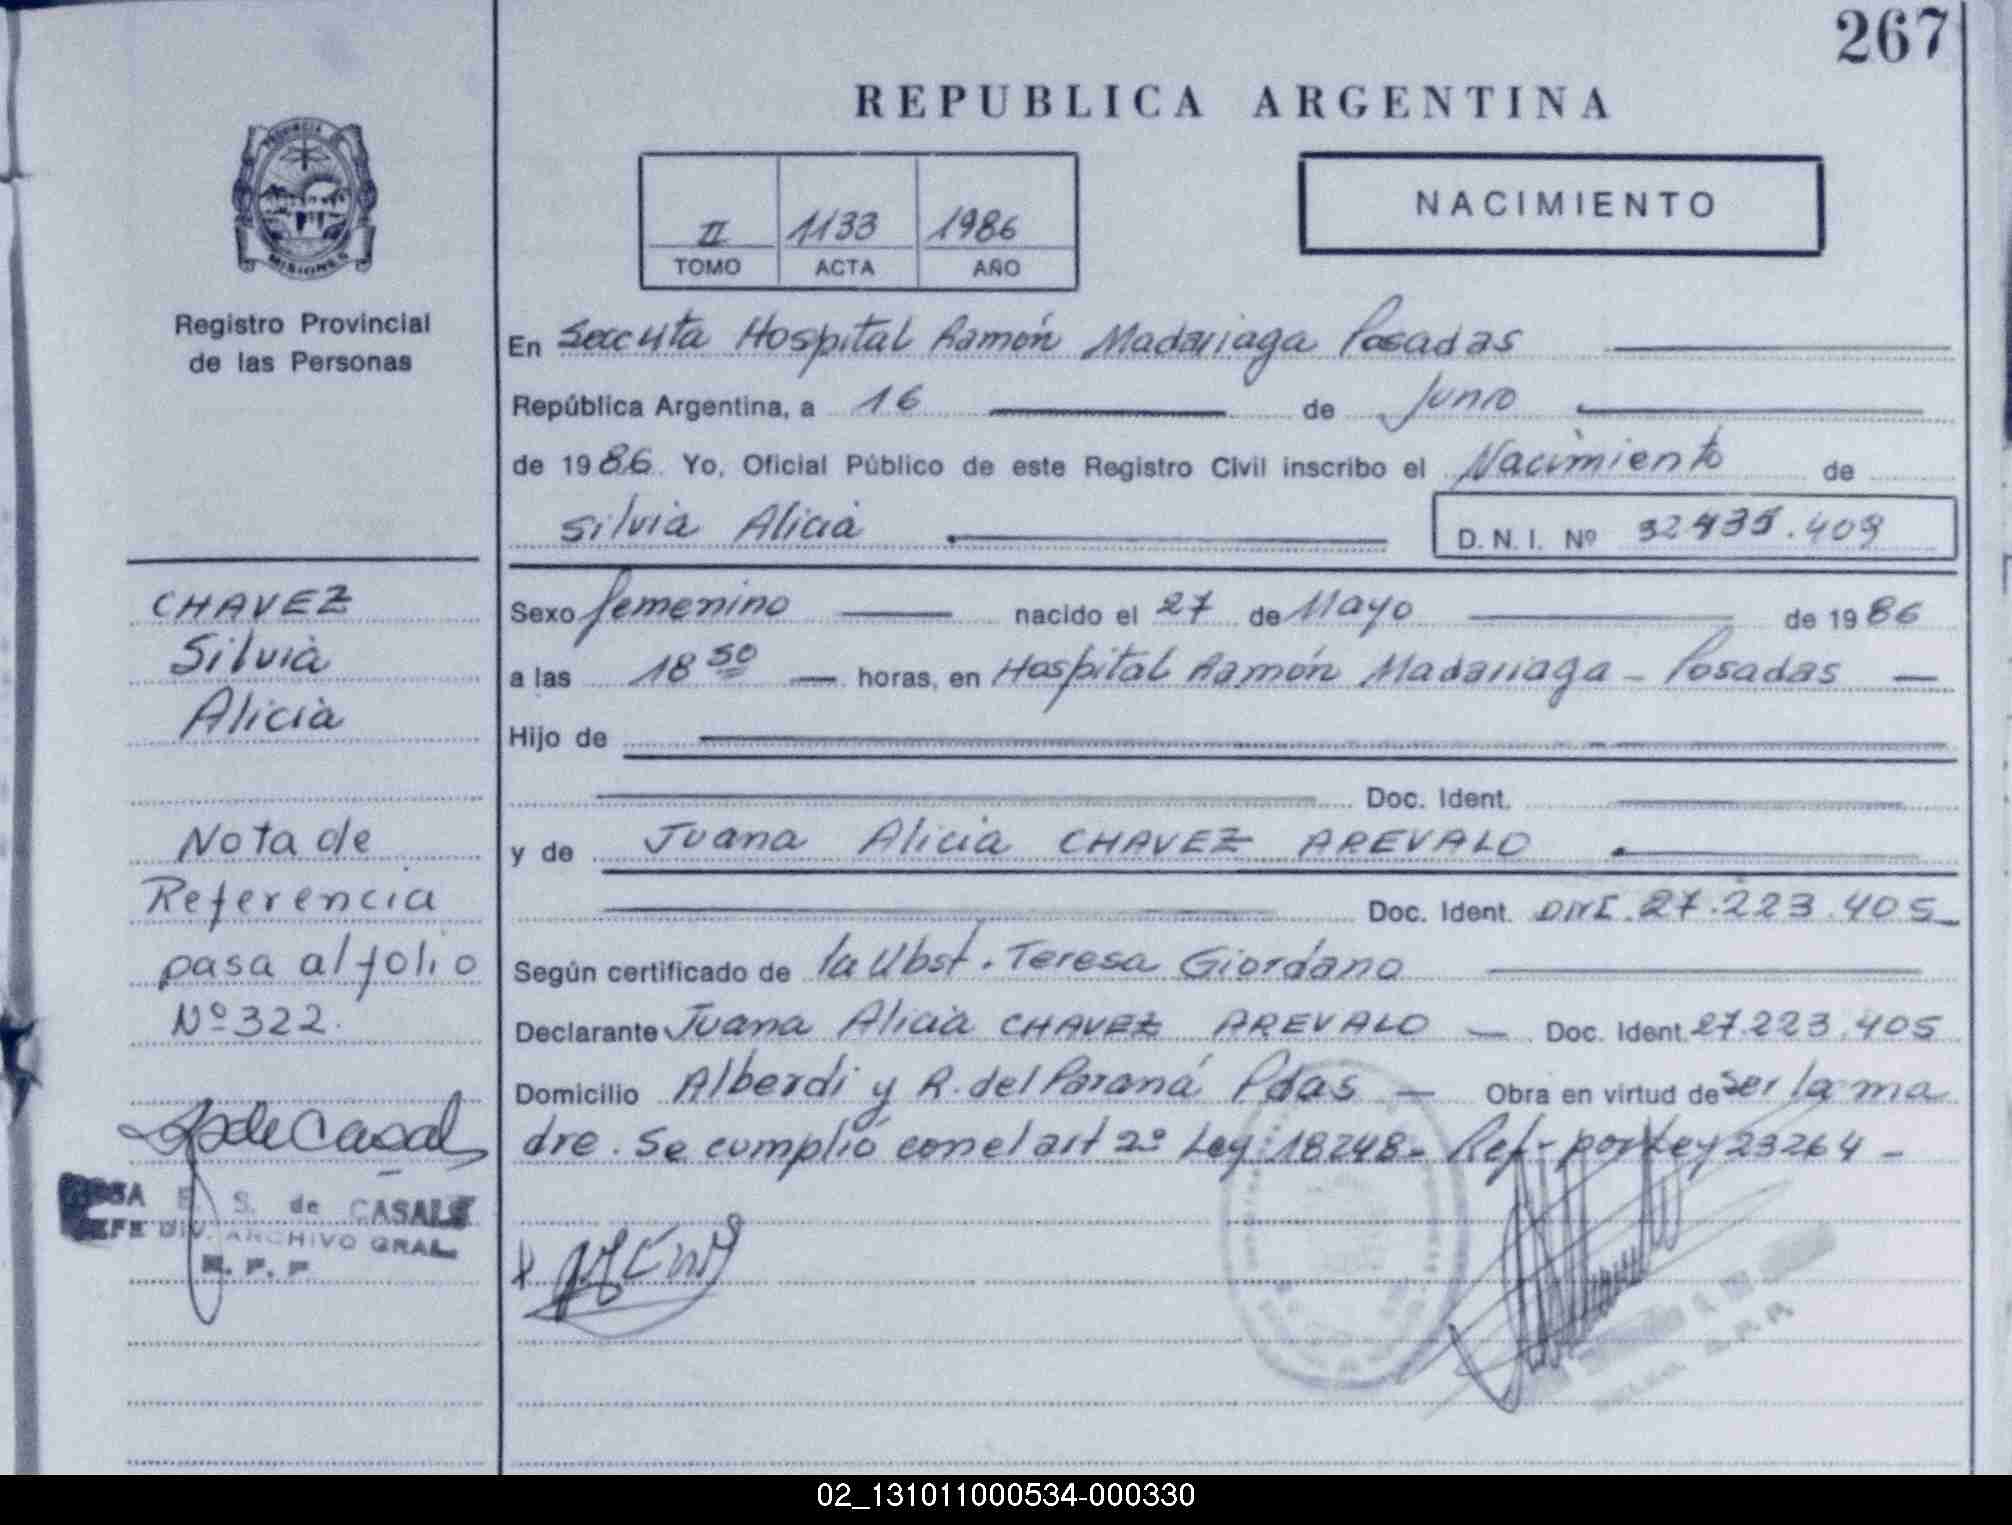 267
REPUBLICA ARGENTINA
PROVINCIA DE
MISIONES
Registro Provincial
de las Personas
II 1133 1986
TOMO ACTA AÑO
NACIMIENTO
En Hospital Ramón Madariaga Posadas
República Argentina, a 16 de Junio
de 1986. Yo, Oficial Público de este Registro Civil inscribo el Nacimiento de
Silvia Alicia
D. N. I. Nº 32435.409
CHAVEZ
Silvia
Alicia
Nota de
Referencia
pasa al folio
Nº 322.
S de Casal
E. S. de CASALS
JEFE DIV. ARCHIVO GRAL.
R. P. P.
Sexo femenino nacido el 27 de Mayo de 1986
a las 18 50 horas, en Hospital Ramón Madariaga - Posadas
Hijo de
Doc. Ident.
y de Juana Alicia CHAVEZ AREVALO
Doc. Ident. DNI. 27.223.405
Según certificado de la Obst. Teresa Giordano
Declarante Juana Alicia CHAVEZ AREVALO Doc. Ident. 27.223.405
Domicilio Alberdi y R. del Paraná Pdas Obra en virtud de ser la ma
dre. Se cumplió con el art 2º Ley 18248- Ref- por Ley 23264 -
02_131011000534-000330